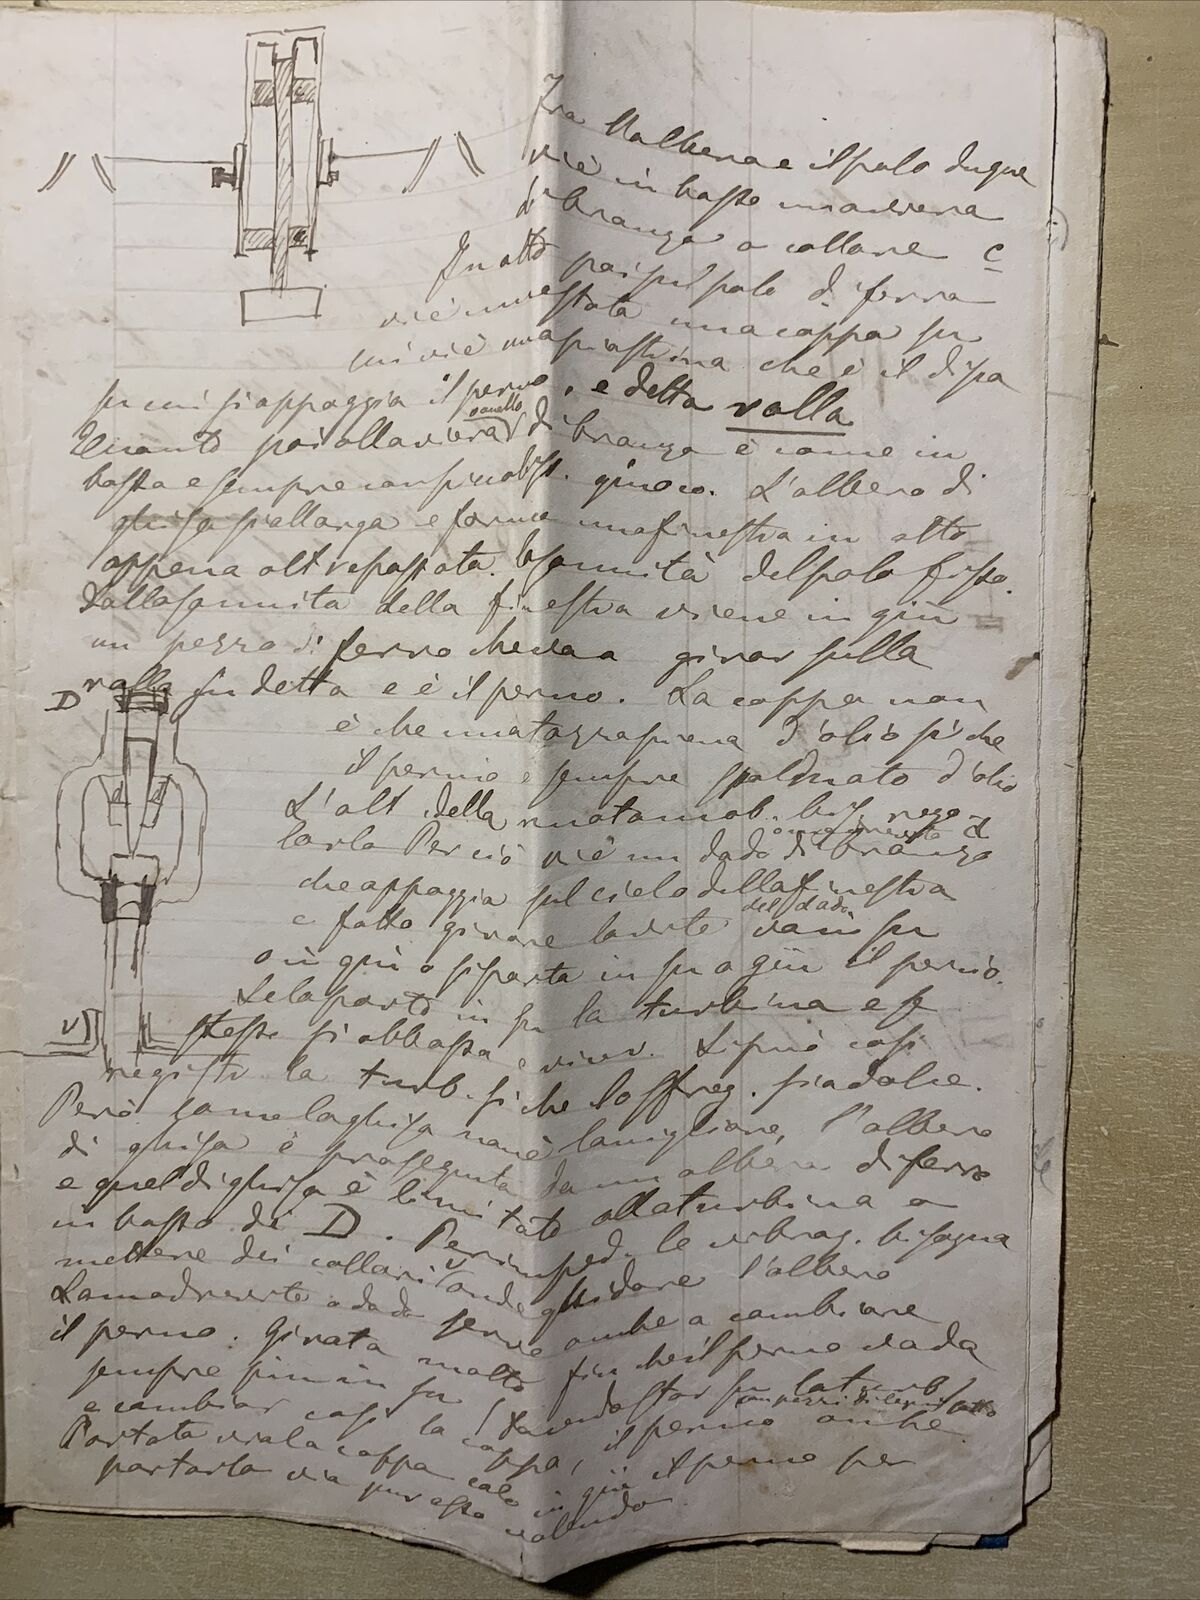 Tra l'albero e il palo dunque
v'è in basso una viera
di bronzo o collare c
In alto poi sul palo di ferro
v'è innestata una coppa su
cui v'è una piastrina che è il
su cui si appoggia il perno, e detta ralla
Quanto poi alla viera o anello di bronzo è come in
basso e sempre con piccoliss. giuoco. L'albero di
ghisa si allarga e forma una finestra in alto
appena oltrepassata la sommità del palo fisso.
Dalla sommità della finestra viene in giù
un pezzo di ferro che va a girar sulla
ralla sudetta e è il perno. La coppa non
è che una tazza piena d'olio sì che
il perno è sempre d'olio
L'alt. della ruota mob. bis. rego-
larla Perciò v'è un dado di bronzo o madrevite d
che appoggia sul cielo della finestra
e fatto girare la vite del dado va in su
o in giù o si porta in su o giù il perno.
Se la porto in su la turbina
stessa si abbassa e vicev. Si può così
registr. la turb. sì che lo sfreg. sia dolce.
Però come la ghisa non è la migliore, l'albero
di ghisa è proseguito da un albero di ferro
e quel di ghisa è limitato alla turbina o
in basso di D. Per imped. le vibraz. bisogna
mettere dei collari V onde guidare l'albero
La madrevite o dado serve anche a cambiare
il perno. Girata molto finchè il perno vada
sempre più in su (dovendo star su la turb. con pezzi di legno sotto)
e cambiar così la coppa, il perno anche.
Portata via la coppa calo in giù il perno per
portarlo via pur esso volendo
D
V